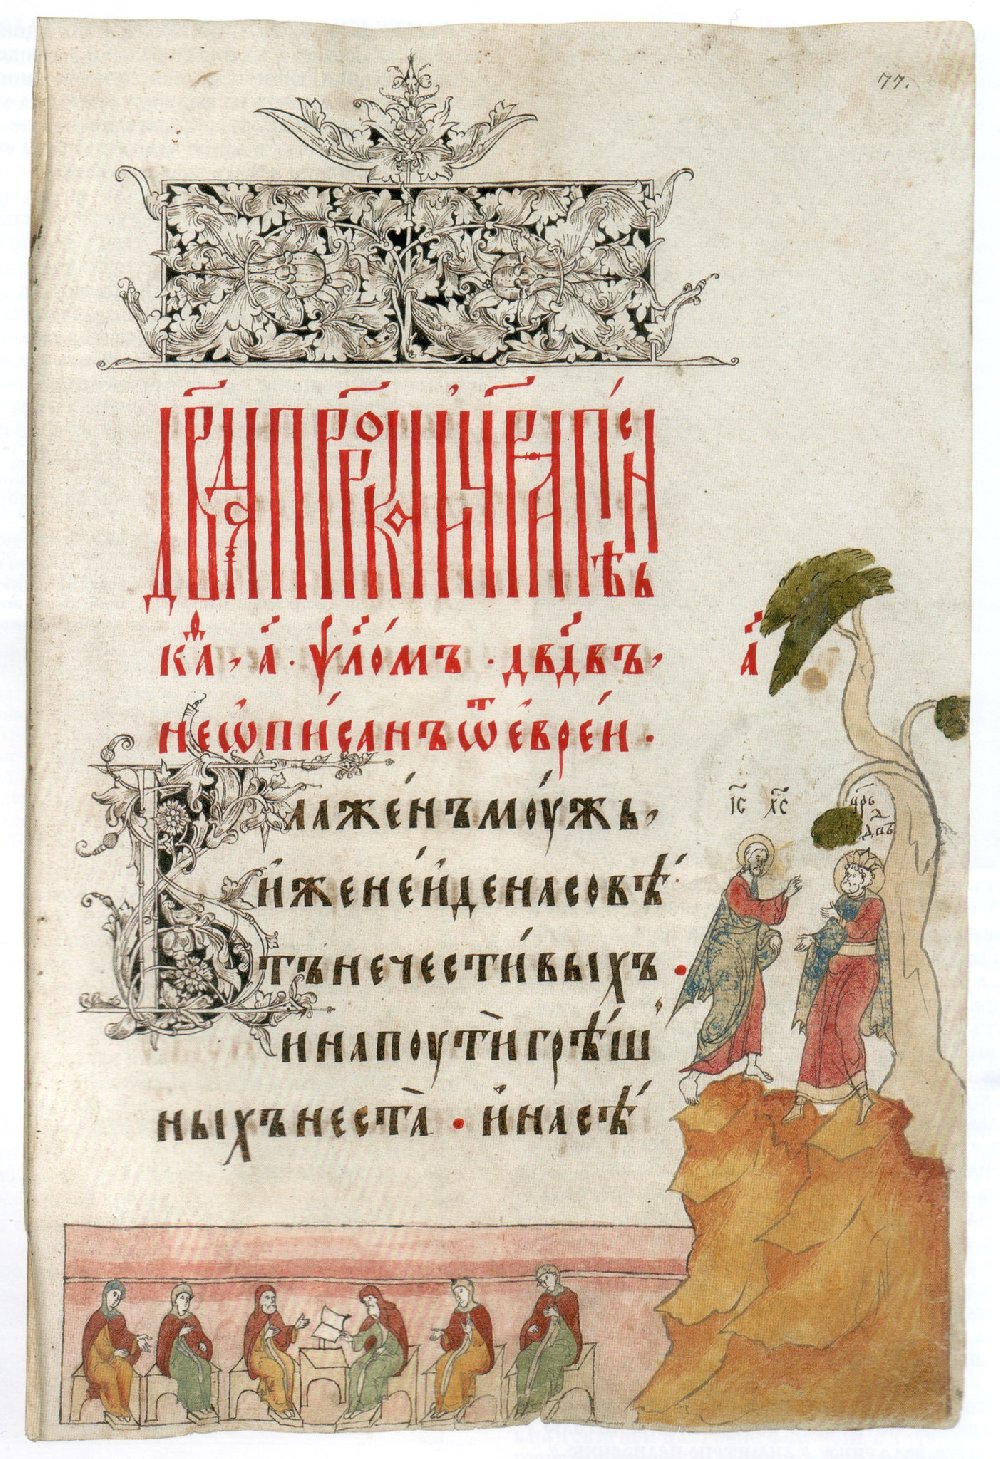 77.
Дв҃да прⷪ҇рка и цр҃ѧ пѣснь
а҃ · ѱало́мъ · дв҃двъ, а҃
не ѡпи́санъ ѿ е́вре́и ·
Блаже́нъ моу́жь,
и́же не и́де на совѣ́
тъ нечести́выхъ •
и на поутѝ грѣ́ш
ныхъ не ста̀ • и́ на сѣ́
І҃С Х҃С
цр҃ь
дв҃дъ